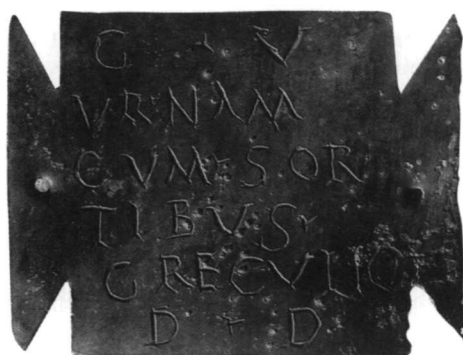 G · V
VRNAM
CVM · SOR
TIBVS ·
GRECVLIO
D · D